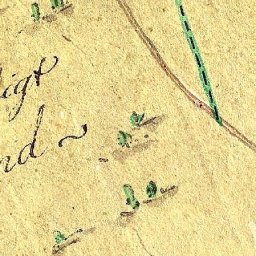 igt
nd ~